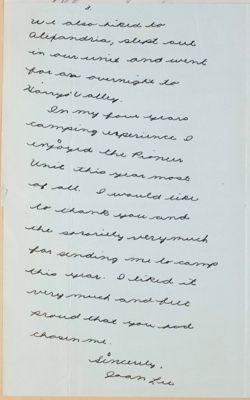 We also hiked to
Alexandria, slept out
in our unit and went
for an overnight to
Valley.
In my four years
camping experience I
enjoyed the Pioneer
Unit this year most
of all. I would like
to thank you and
the sorority very much
for sending me to camp
this year. I liked it
very much and felt
proud that you had
chosen me.
Sincerely,
Joan Lee